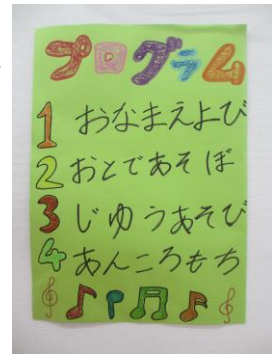 プログラム
1 おなまえよび
2 おとであそぼ
3 じゆうあそび
4 あんころもち